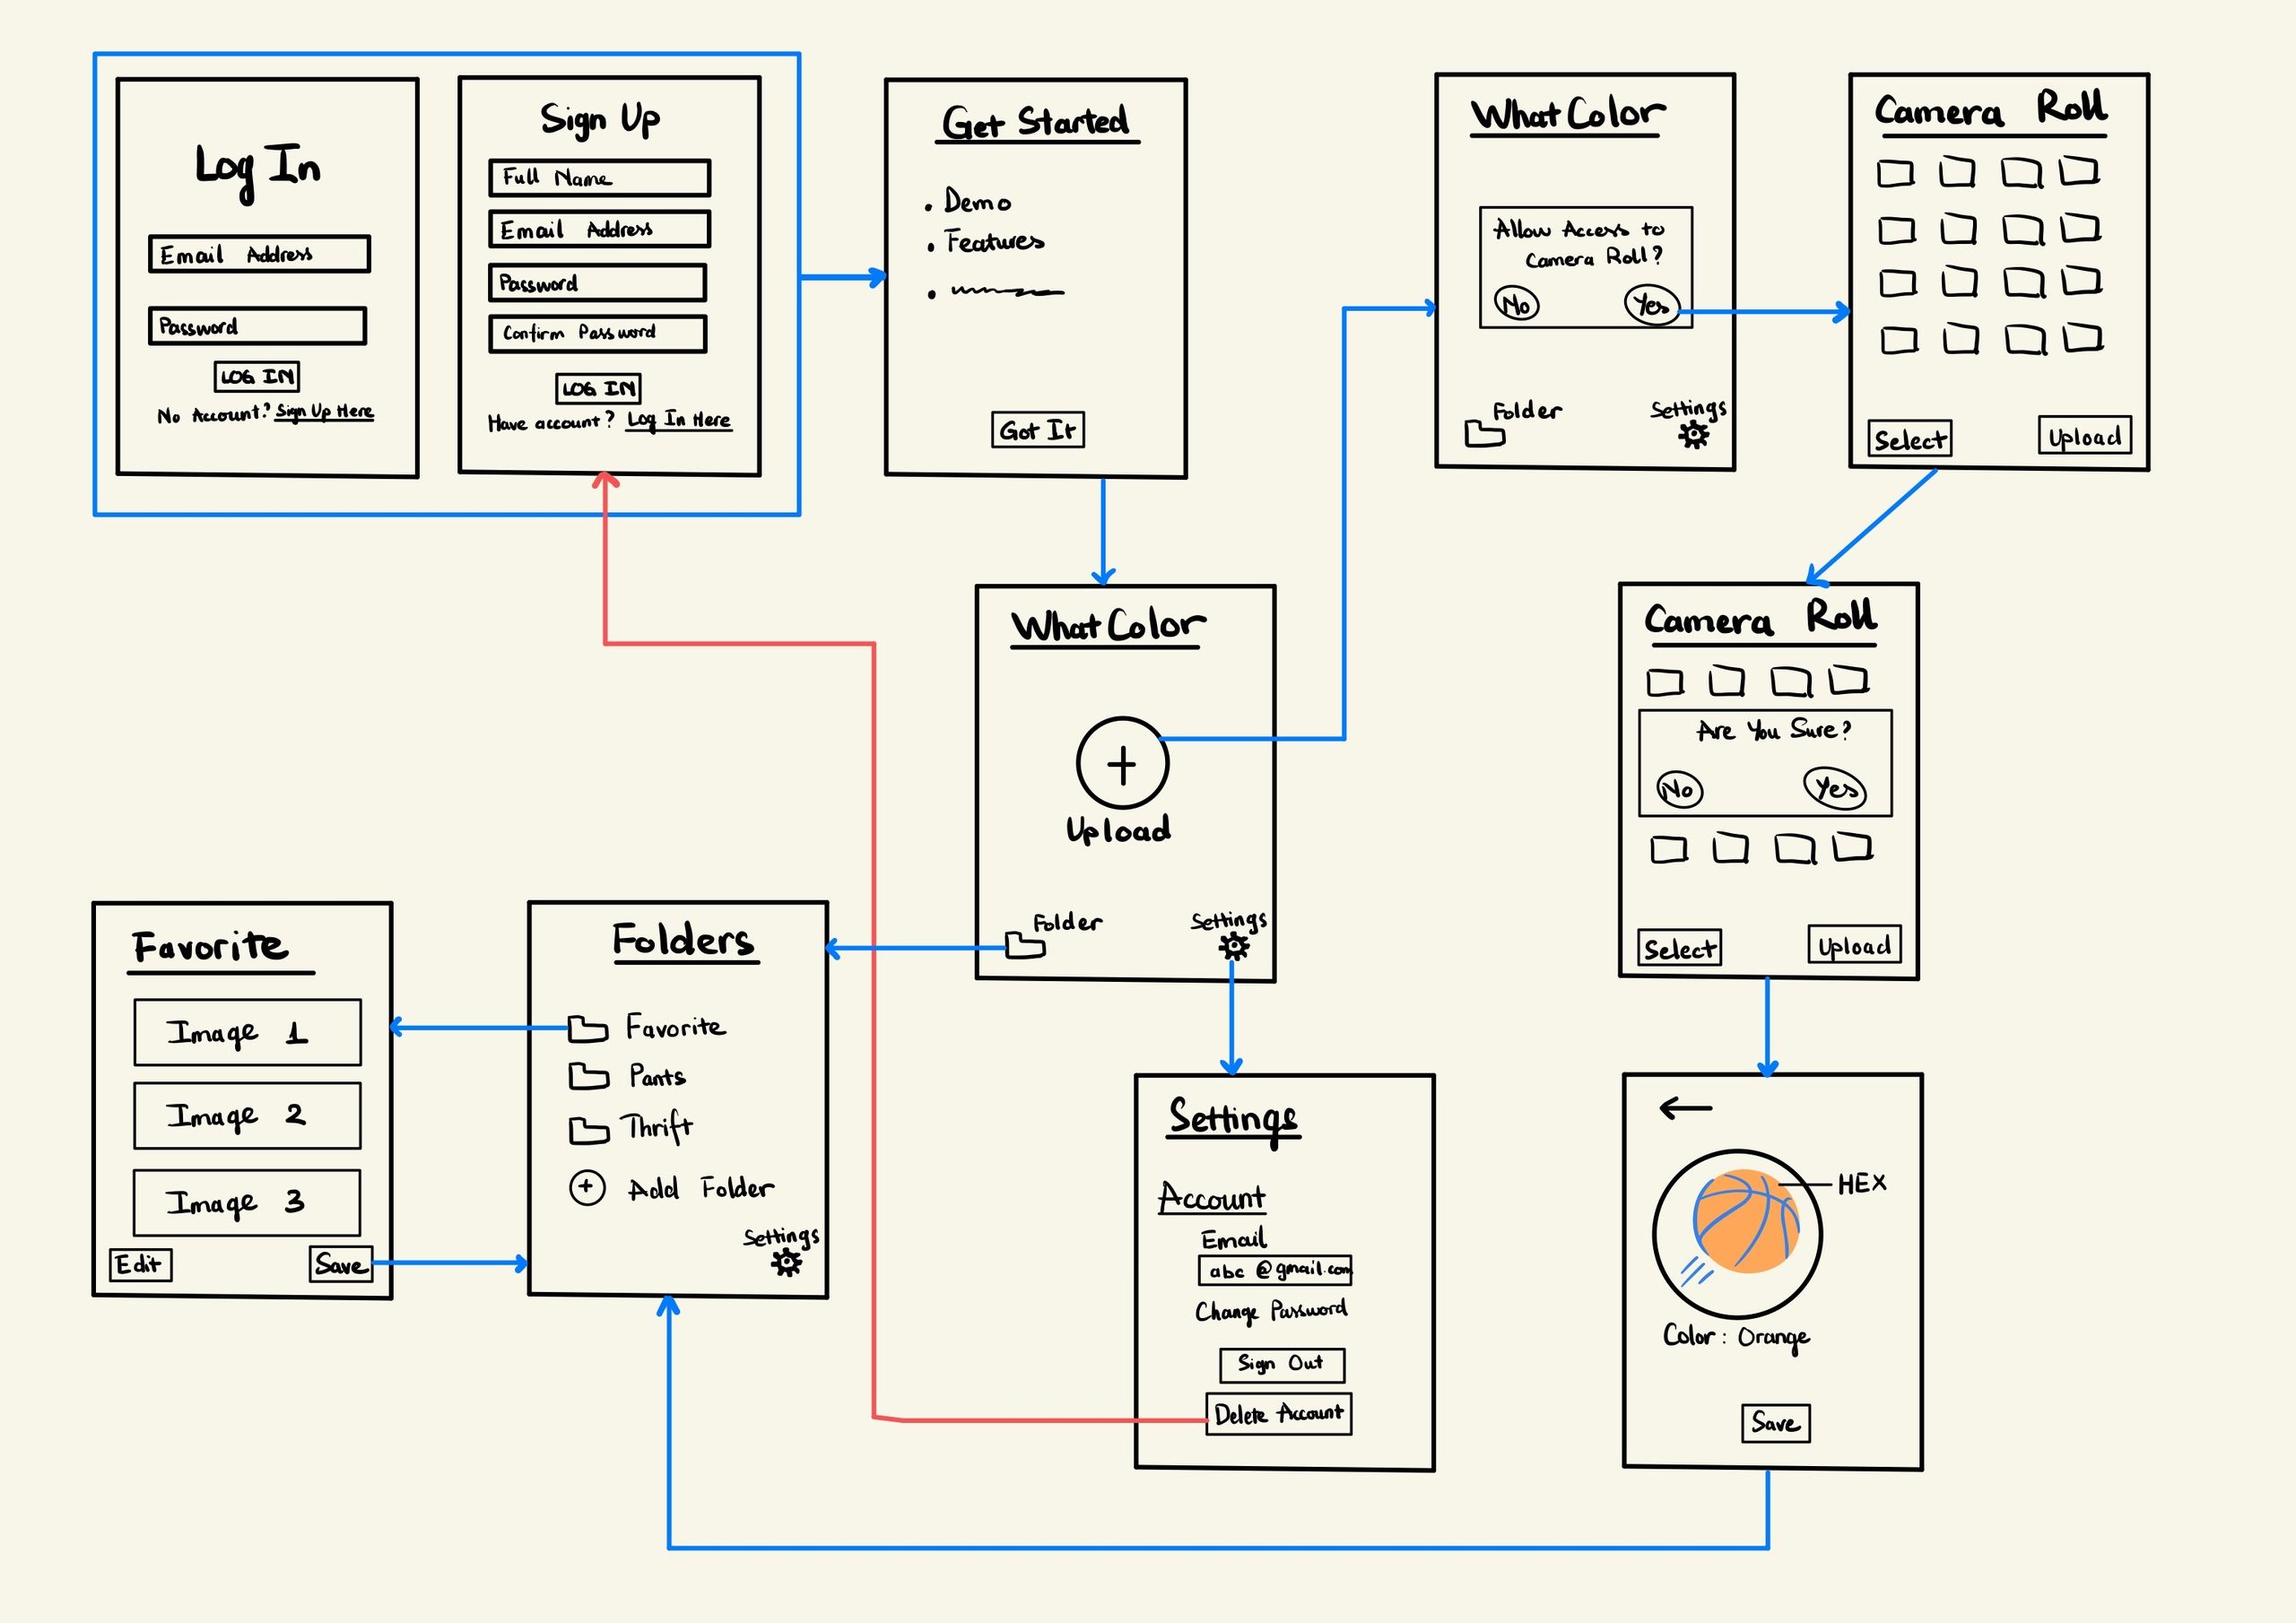 Log In
Email Address
Password
LOG IN
No Account? Sign Up Here
Sign Up
Full Name
Email Address
Password
Confirm Password
LOG IN
Have account? Log In Here
Get Started
• Demo
• Features
•
Got It
WhatColor
Allow Access to
Camera Roll?
No
Yes
Folder
Settings
Camera Roll
Select
Upload
WhatColor
+
Upload
Folder
Settings
Camera Roll
Are You Sure?
No
Yes
Select
Upload
Favorite
Image 1
Image 2
Image 3
Edit
Save
Folders
Favorite
Pants
Thrift
+ Add Folder
Settings
Settings
Account
Email
abc @gmail.com
Change Password
Sign Out
Delete Account
HEX
Color: Orange
Save